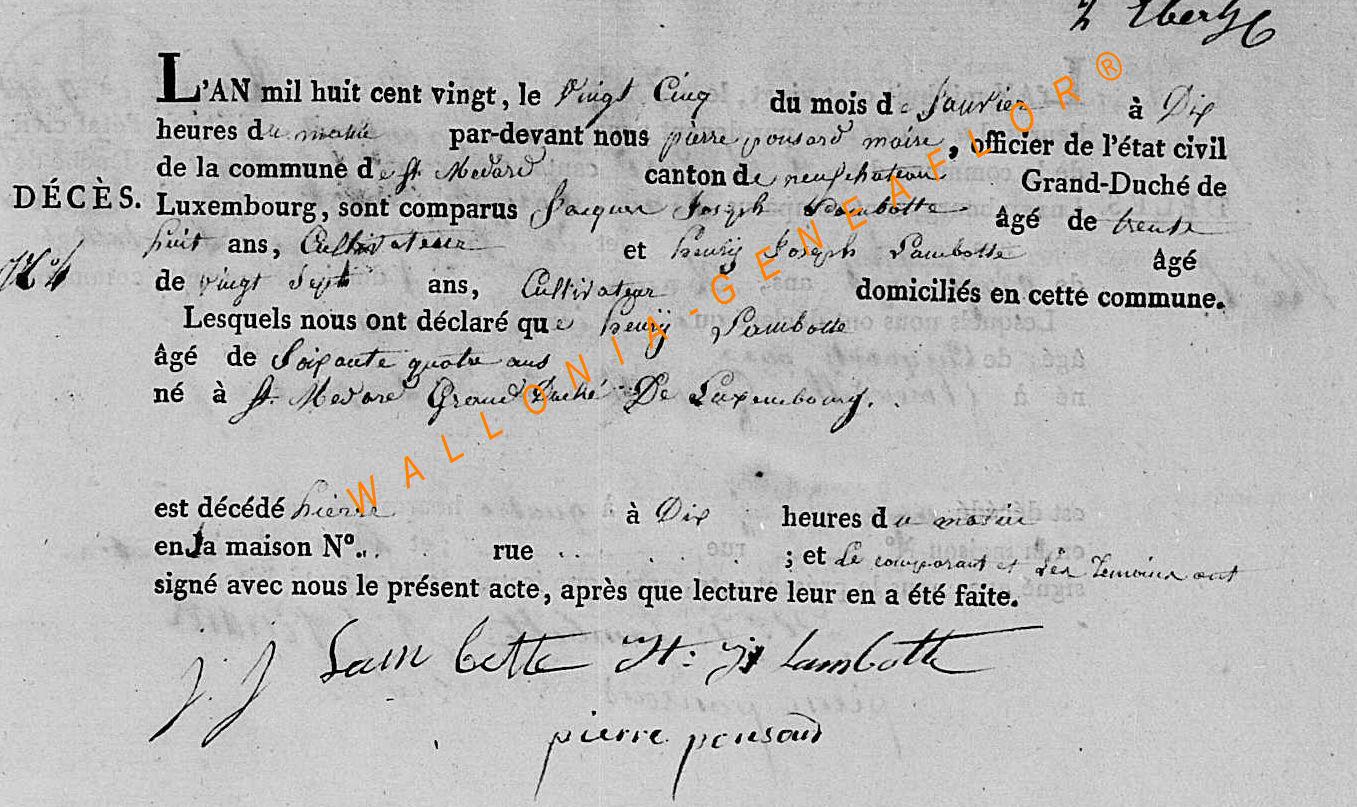 L'AN mil huit cent vingt, le vingt Cinq du mois de Janvier à Dix
heures du matin par-devant nous pierre ponsard maire, officier de l'état civil
de la commune de St Medard canton de neufchateau Grand-Duché de
DÉCÈS. Luxembourg, sont comparus Jacques Joseph Lambotte âgé de trente
huit ans, Cultivateur et henrÿ Joseph Lambotte âgé
de vingt Sept ans, Cultivateur domiciliés en cette commune.
Lesquels nous ont déclaré que henrÿ Lambotte
âgé de Soixante quatre ans
né à St Medard Grand Duché De Luxembourg.
est décédé hierre à Dix heures du matin
en la maison No. rue ; et Le comparant et Les temoins ont
signé avec nous le présent acte, après que lecture leur en a été faite.
j. j Lambotte H: j Lambotte
pierre ponsard
WALLONIA-GENEAFLOR®